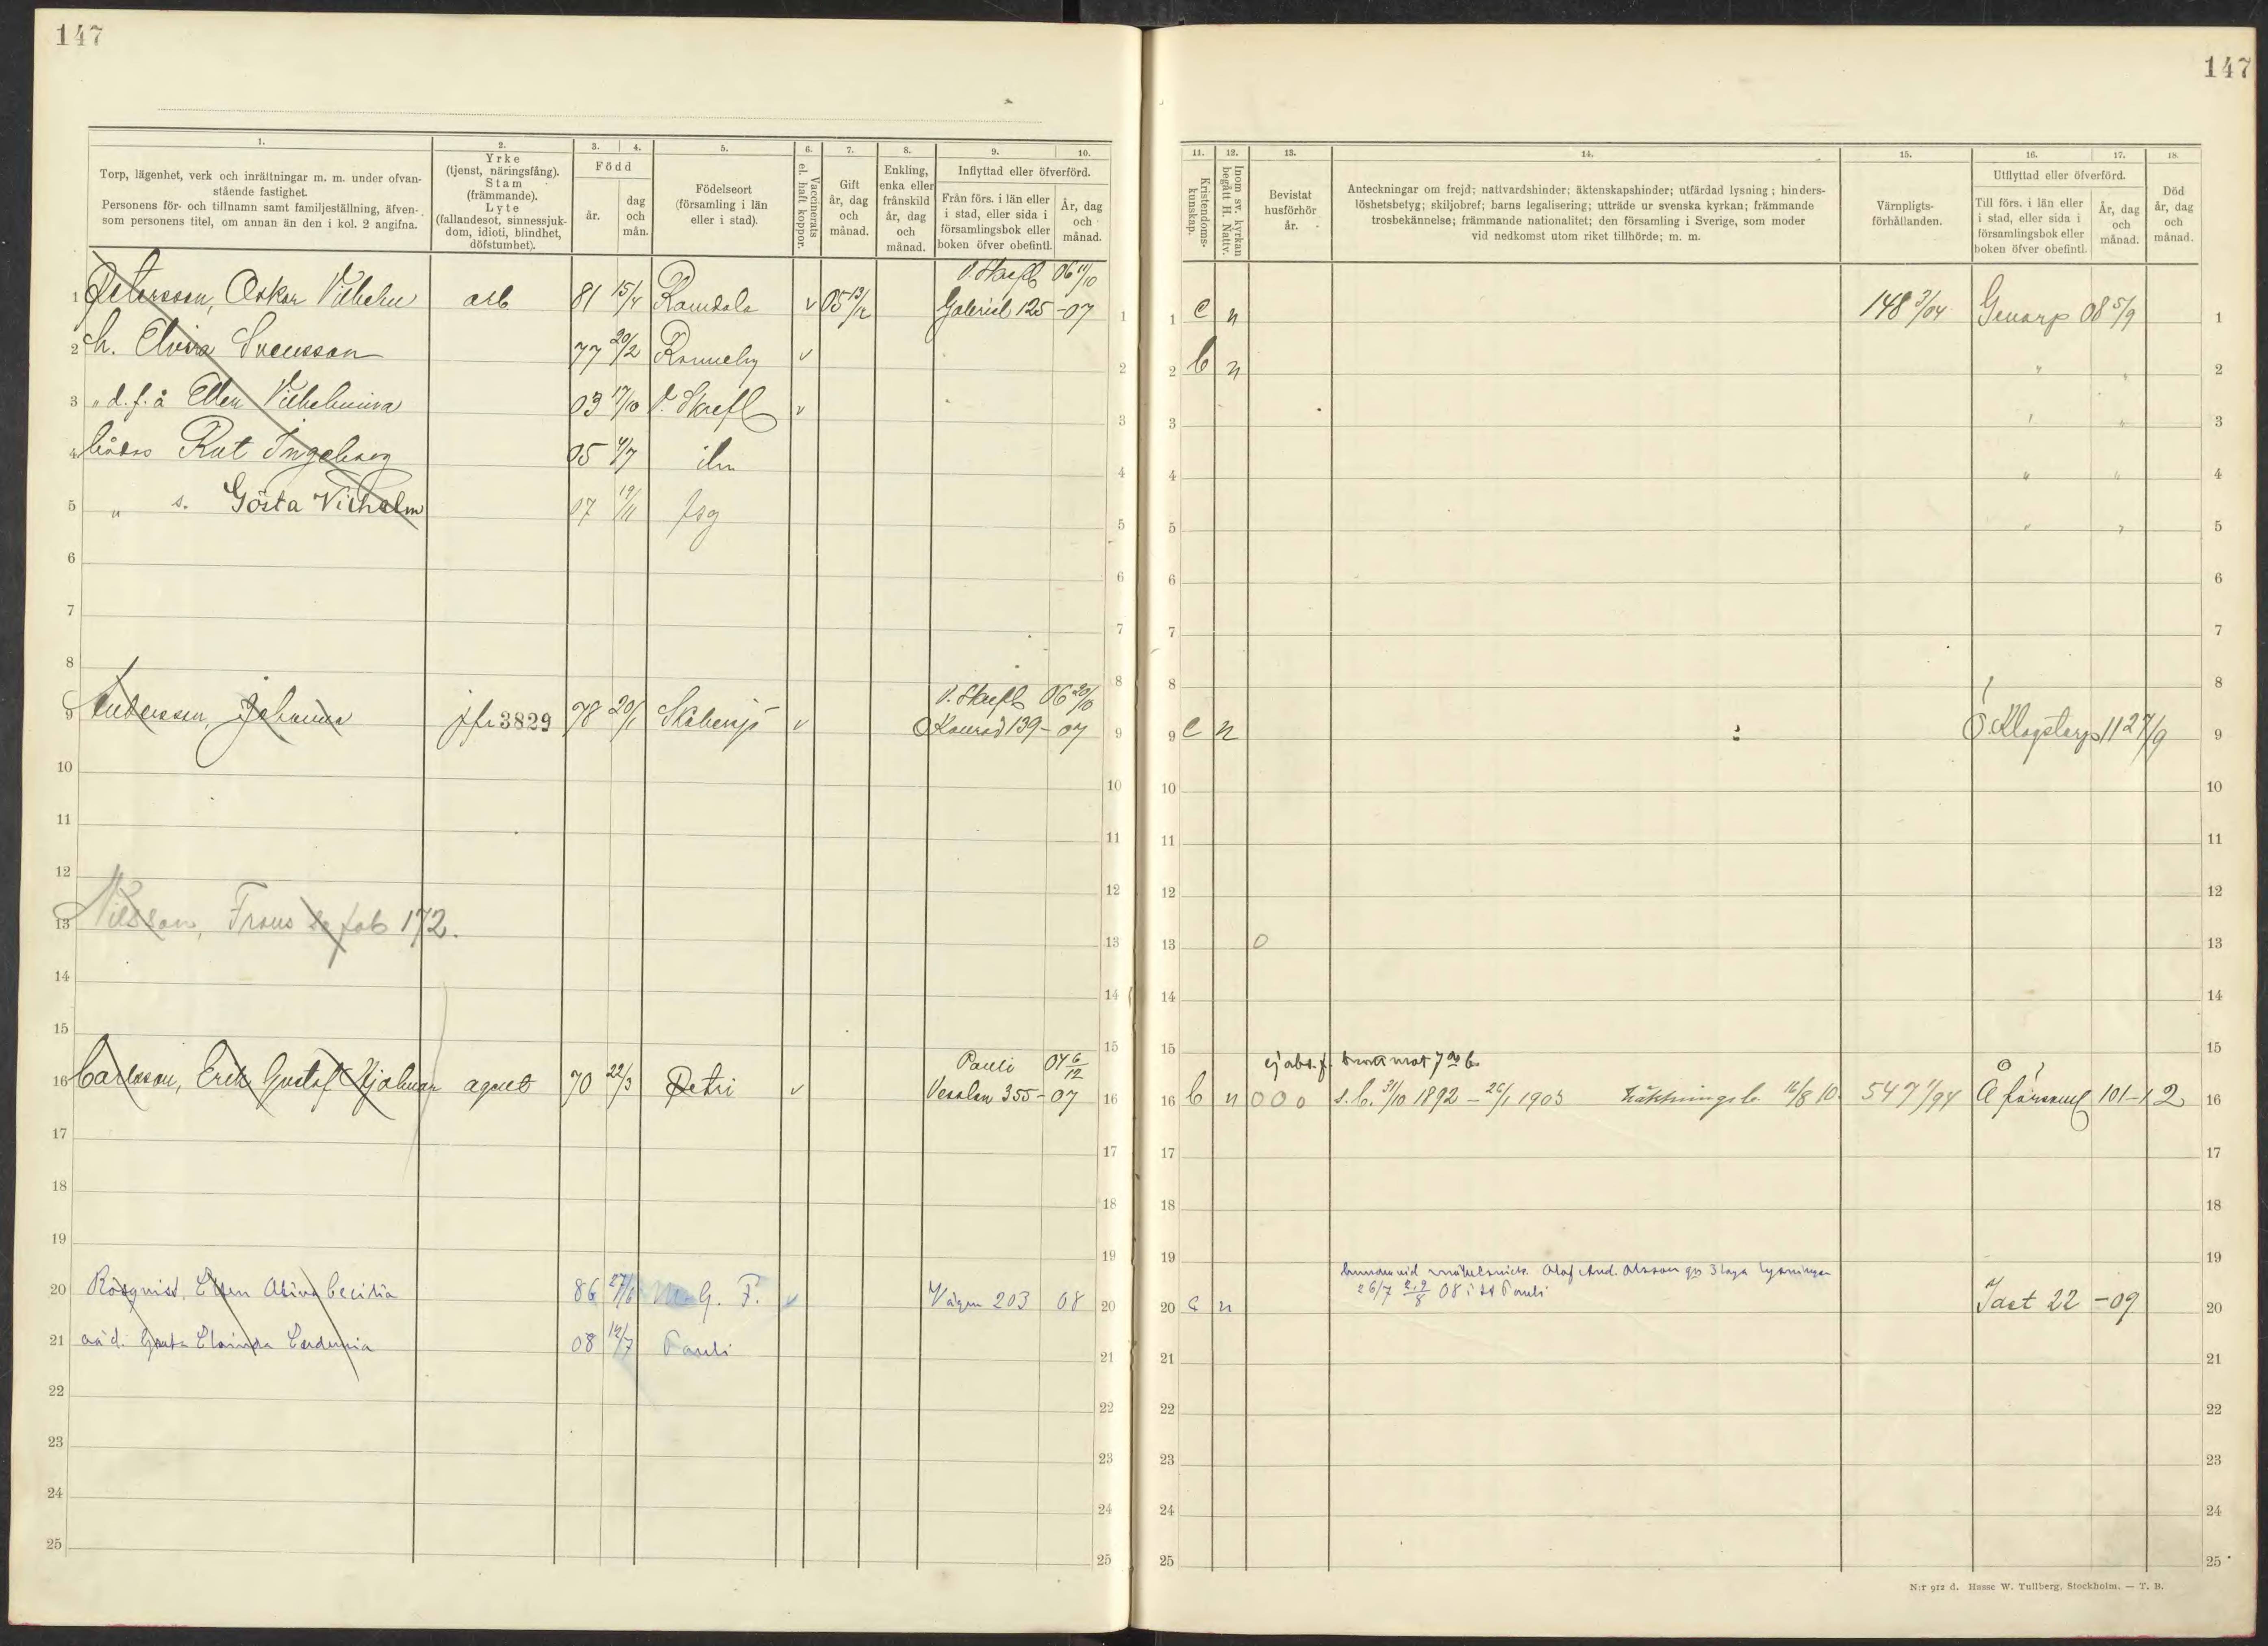 147
147
1.
Torp, lägenhet, verk och inrättningar m. m. under ofvan-
stående fastighet.
Personens för- och tillnamn samt familjeställning, äfven-
som personens titel, om annan än den i kol. 2 angifna.
2.
Yrke
(tjenst, näringsfång).
Stam
(främmande).
Lyte
(fallandesot, sinnessjuk-
dom, idioti, blindhet,
döfstumhet).
3. 4.
Född
år.
dag
och
mån.
5.
Födelseort
(församling i län
eller i stad).
6.
Vaccinerats
el. haft koppor.
7.
Gift
år, dag
och
månad.
8.
Enkling,
enka eller
frånskild
år, dag
och
månad.
9. 10.
Inflyttad eller öfverförd.
Från förs. i län eller
i stad, eller sida i
församlingsbok eller
boken öfver obefintl.
År, dag
och
månad.
V. Skrefl. 06 11/10
1 Petersson, Oskar Vilhelm arb 81 15/4 Ramdala v 05 Gabriel 125 -07 1
2 h. Elvira Svensson 77 20/2 Ronneby v 2
3 " d. f. ä Ellen Vilhelmina 03 17/10 V. Skrefl v 3
4 Rut Ingeborg 05 4/7 ibm 4
5 " s. Gösta Vilhelm 07 19/11 fsg 5
6 6
7 7
8 8
V. Skrefl. 06 20/10
9 Andersson, Johanna jfr 3829 78 20/1 Skabersjö v Konrad 139 - 07 9
10 10
11 11
12 12
13 Nilsson, Frans se fab 172. 13
14 14
15 15
Pauli 04 6/12
16 Carlsson, Erik Gustaf Hjalmar agent 70 22/3 Petri v Veslan 355 - 07 16
17 17
18 18
19 19
20 Rosqvist, Ellen Alina Cecilia 86 27/6 G. F. v Vägen 203 08 20
21 oä d. Greta 08 14/7 Pauli 21
22 22
23 23
24 24
25 25
11.
Kristendoms-
kunskap.
12.
Inom sv. kyrkan
begått H. Nattv.
13.
Bevistat
husförhör
år.
14.
Anteckningar om frejd; nattvardshinder; äktenskapshinder; utfärdad lysning; hinders-
löshetsbetyg; skiljobref; barns legalisering; utträde ur svenska kyrkan; främmande
trosbekännelse; främmande nationalitet; den församling i Sverige, som moder
vid nedkomst utom riket tillhörde; m. m.
15.
Värnpligts-
förhållanden.
16. 17.
Utflyttad eller öfverförd.
Till förs. i län eller
i stad, eller sida i
församlingsbok eller
boken öfver obefintl.
År, dag
och
månad.
18
Död
år, dag
och
månad.
1 c n 148 3/04 Genarp 08 5/9 1
2 b n " " 2
3 " " 3
4 " " 4
5 " " 5
6 6
7 7
8 8
9 c n Ö. Klagstorp 11 27/9 9
10 10
11 11
12 12
13 0 13
14 14
15 15
16 b n 0 0 0 s. b. 31/10 1892 - 26/1 1903 16/8 10. 547 1/94 101-12 16
17 17
18 18
19 19
Olof And. Olsson 3 laga lysningar
26/7 2.9/8 08 i St Pauli
20 c n 22 -09 20
21 21
22 22
23 23
24 24
25 25
N:r 912 d. Hasse W. Tullberg, Stockholm. — T. B.